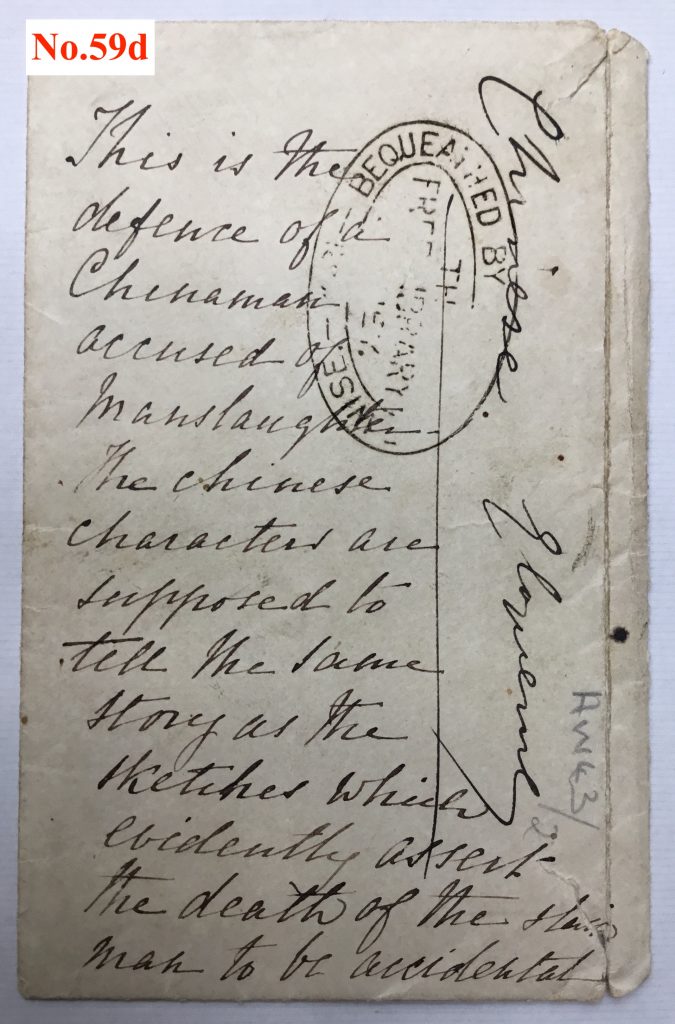 No.59d
This is the
defence of a
Chinaman
accused of
Manslaughter
The Chinese
characters are
supposed to
tell the same
story as the
sketches which
evidently assert
the death of the slain
man to be accidental
Chinese.
BEQUEATHED BY
FREE